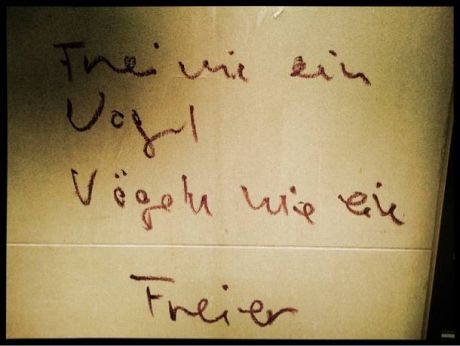 Frei wie ein
Vogel
Vögeln wie ein
Freier